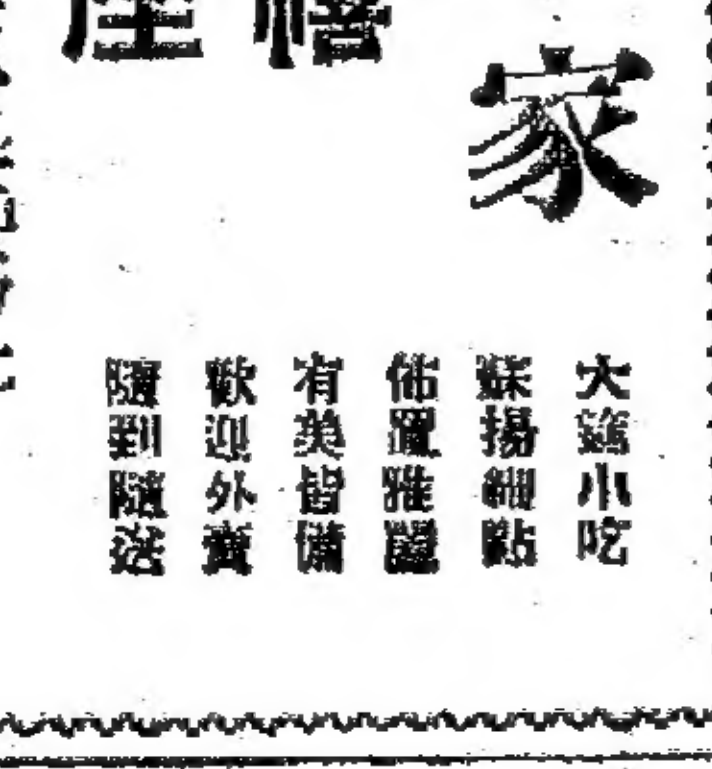 家
大筵小吃
蘇揚細點
佈置雅麗
有美皆備
歡迎外賣
隨到隨送